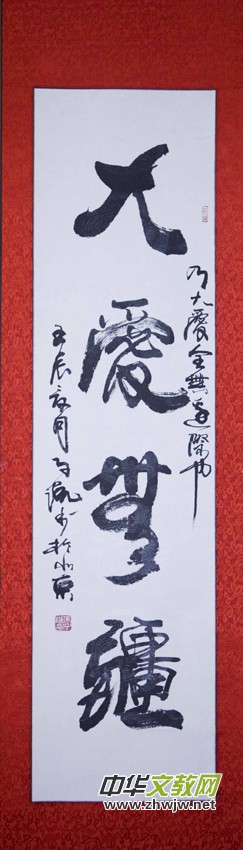 乃大愛全無邊際也
大愛無疆
壬辰月书於北京
中华文教网
www.zhwjw.net